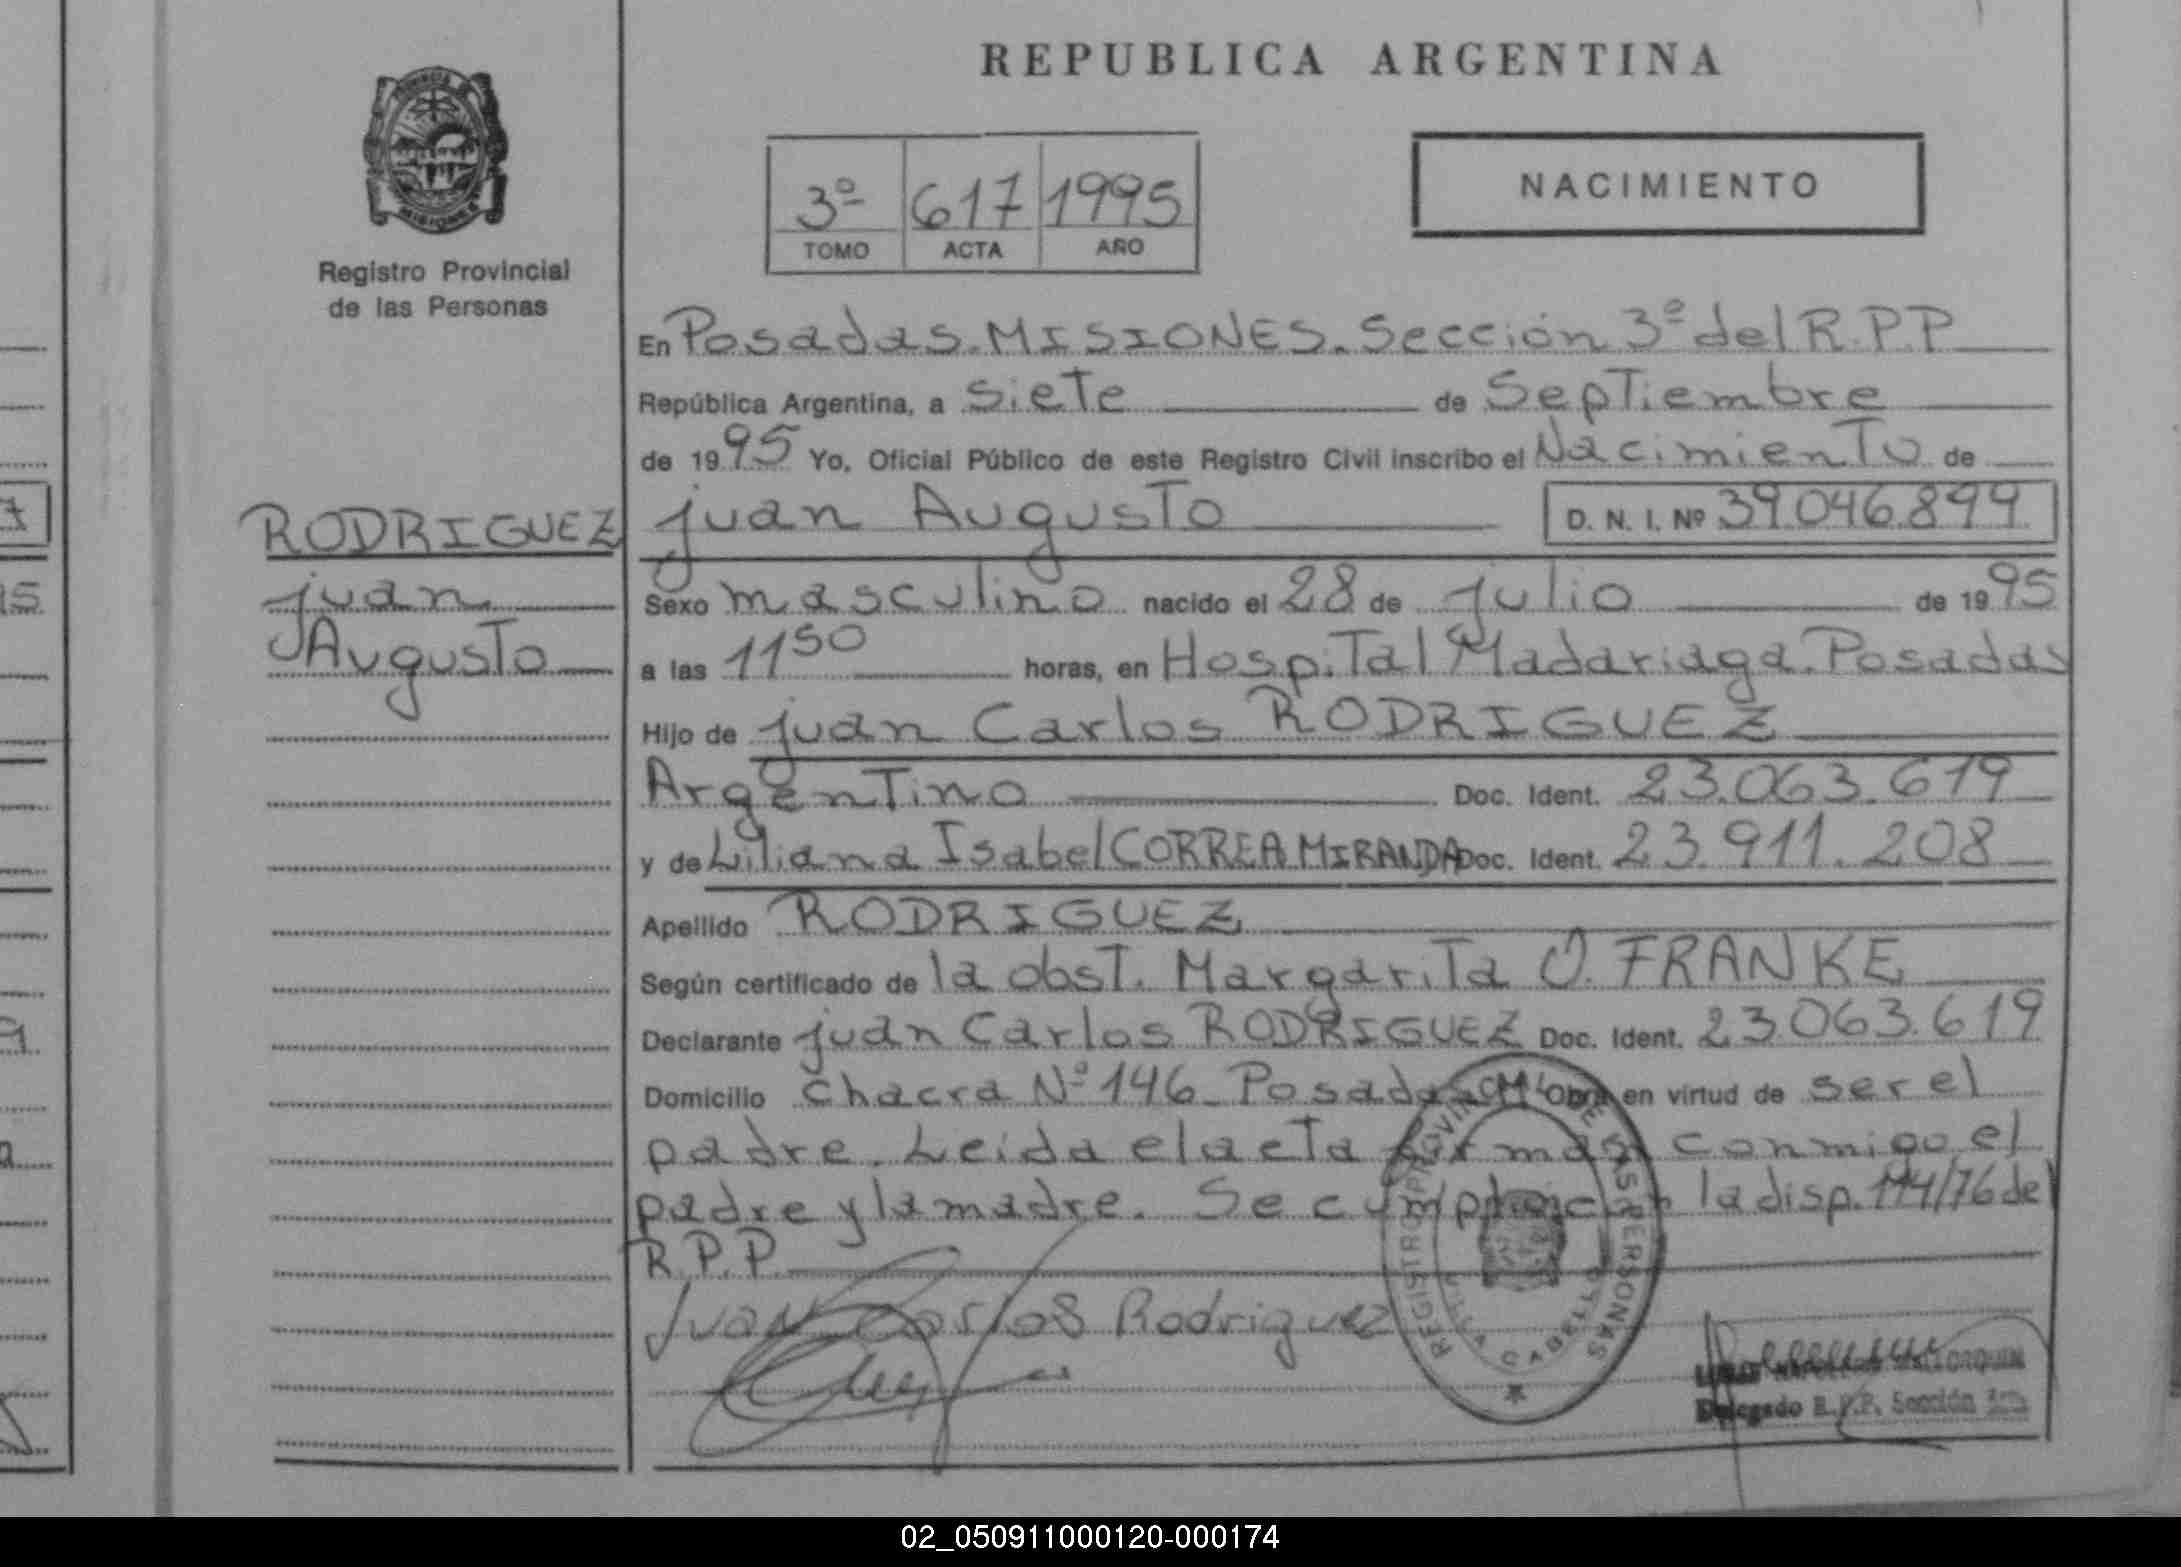 REPUBLICA ARGENTINA
PROVINCIA
MISIONES
Registro Provincial
de las Personas
3º 617 1995
TOMO ACTA AÑO
NACIMIENTO
En Posadas. MISIONES. Sección 3º del R.P.P
República Argentina, a siete de Septiembre
de 1995 Yo, Oficial Público de este Registro Civil inscribo el Nacimiento de
RODRIGUEZ
juan
Augusto
juan Augusto D. N. I. Nº 39.046.899
Sexo masculino nacido el 28 de julio de 1995
a las 11 50 horas, en Hospital Madariaga. Posadas
Hijo de juan Carlos RODRIGUEZ
Argentino Doc. Ident. 23.063.619
y de Liliana Isabel CORREA MIRANDA Doc. Ident. 23.911.208
Apellido RODRIGUEZ
Según certificado de la obst. Margarita O. FRANKE
Declarante juan Carlos RODRIGUEZ Doc. Ident. 23.063.619
Domicilio Chacra Nº 146_ Posadas Obra en virtud de ser el
padre. Leida el acta firman conmigo el
padre y la madre. Se cumple con la disp. 114/76 del
R.P.P.
Juan Carlos Rodriguez
REGISTRO PROVINCIAL DE LAS PERSONAS
Delegado R.P.P. Sección 3ra
02_050911000120-000174